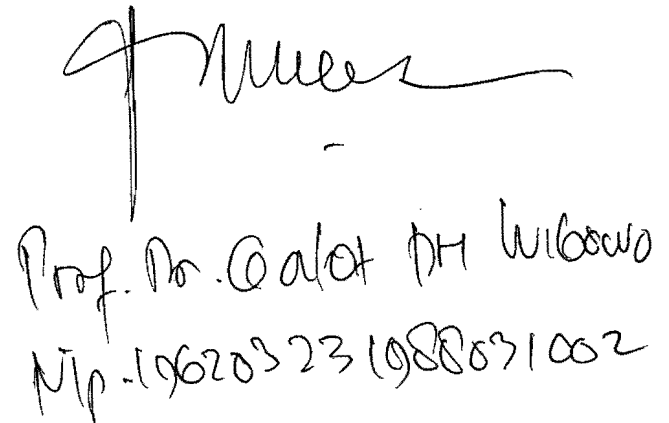 Prof. Dr. Gatot DH Wibowo
Nip. 196203231988031002